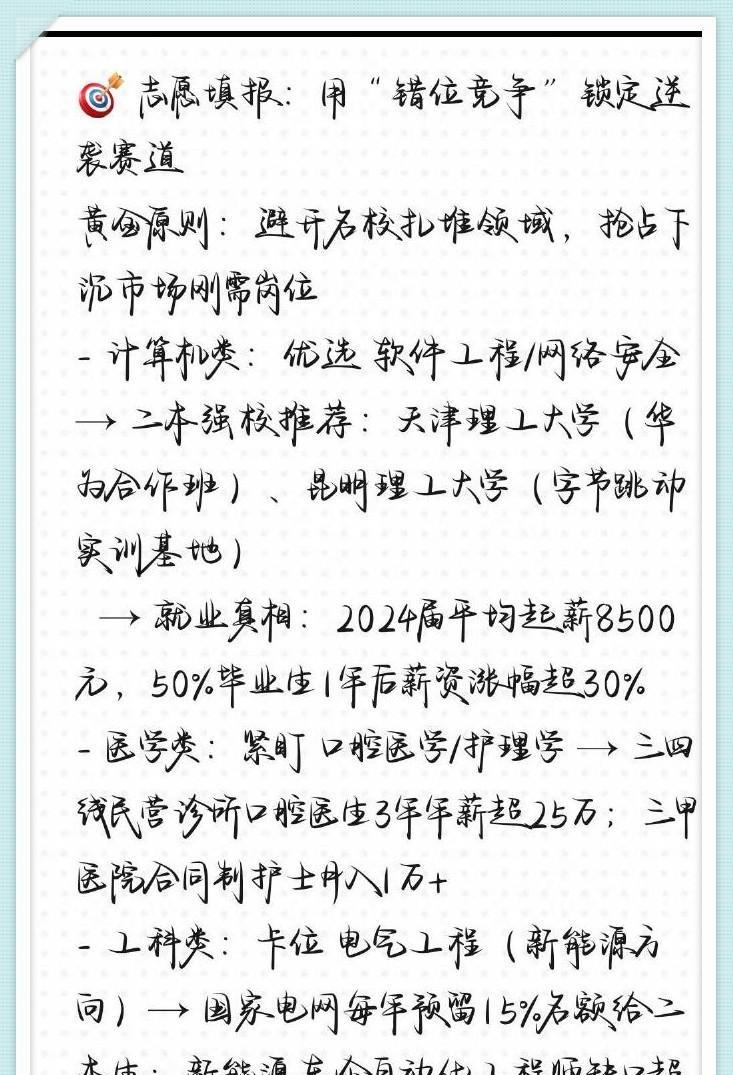 🎯 志愿填报：用“错位竞争”锁定逆
袭赛道
黄金原则：避开名校扎堆领域，抢占下
沉市场刚需岗位
- 计算机类：优选 软件工程/网络安全
→ 二本强校推荐：天津理工大学（华
为合作班）、昆明理工大学（字节跳动
实训基地）
→ 就业真相：2024届平均起薪8500
元，50%毕业生1年后薪资涨幅超30%
- 医学类：紧盯 口腔医学/护理学 → 三四
线民营诊所口腔医生3年年薪超25万；三甲
医院合同制护士月入1万+
- 工科类：卡位 电气工程（新能源方
向）→ 国家电网每年预留15%名额给二
本生；新能源车企自动化工程师缺口超